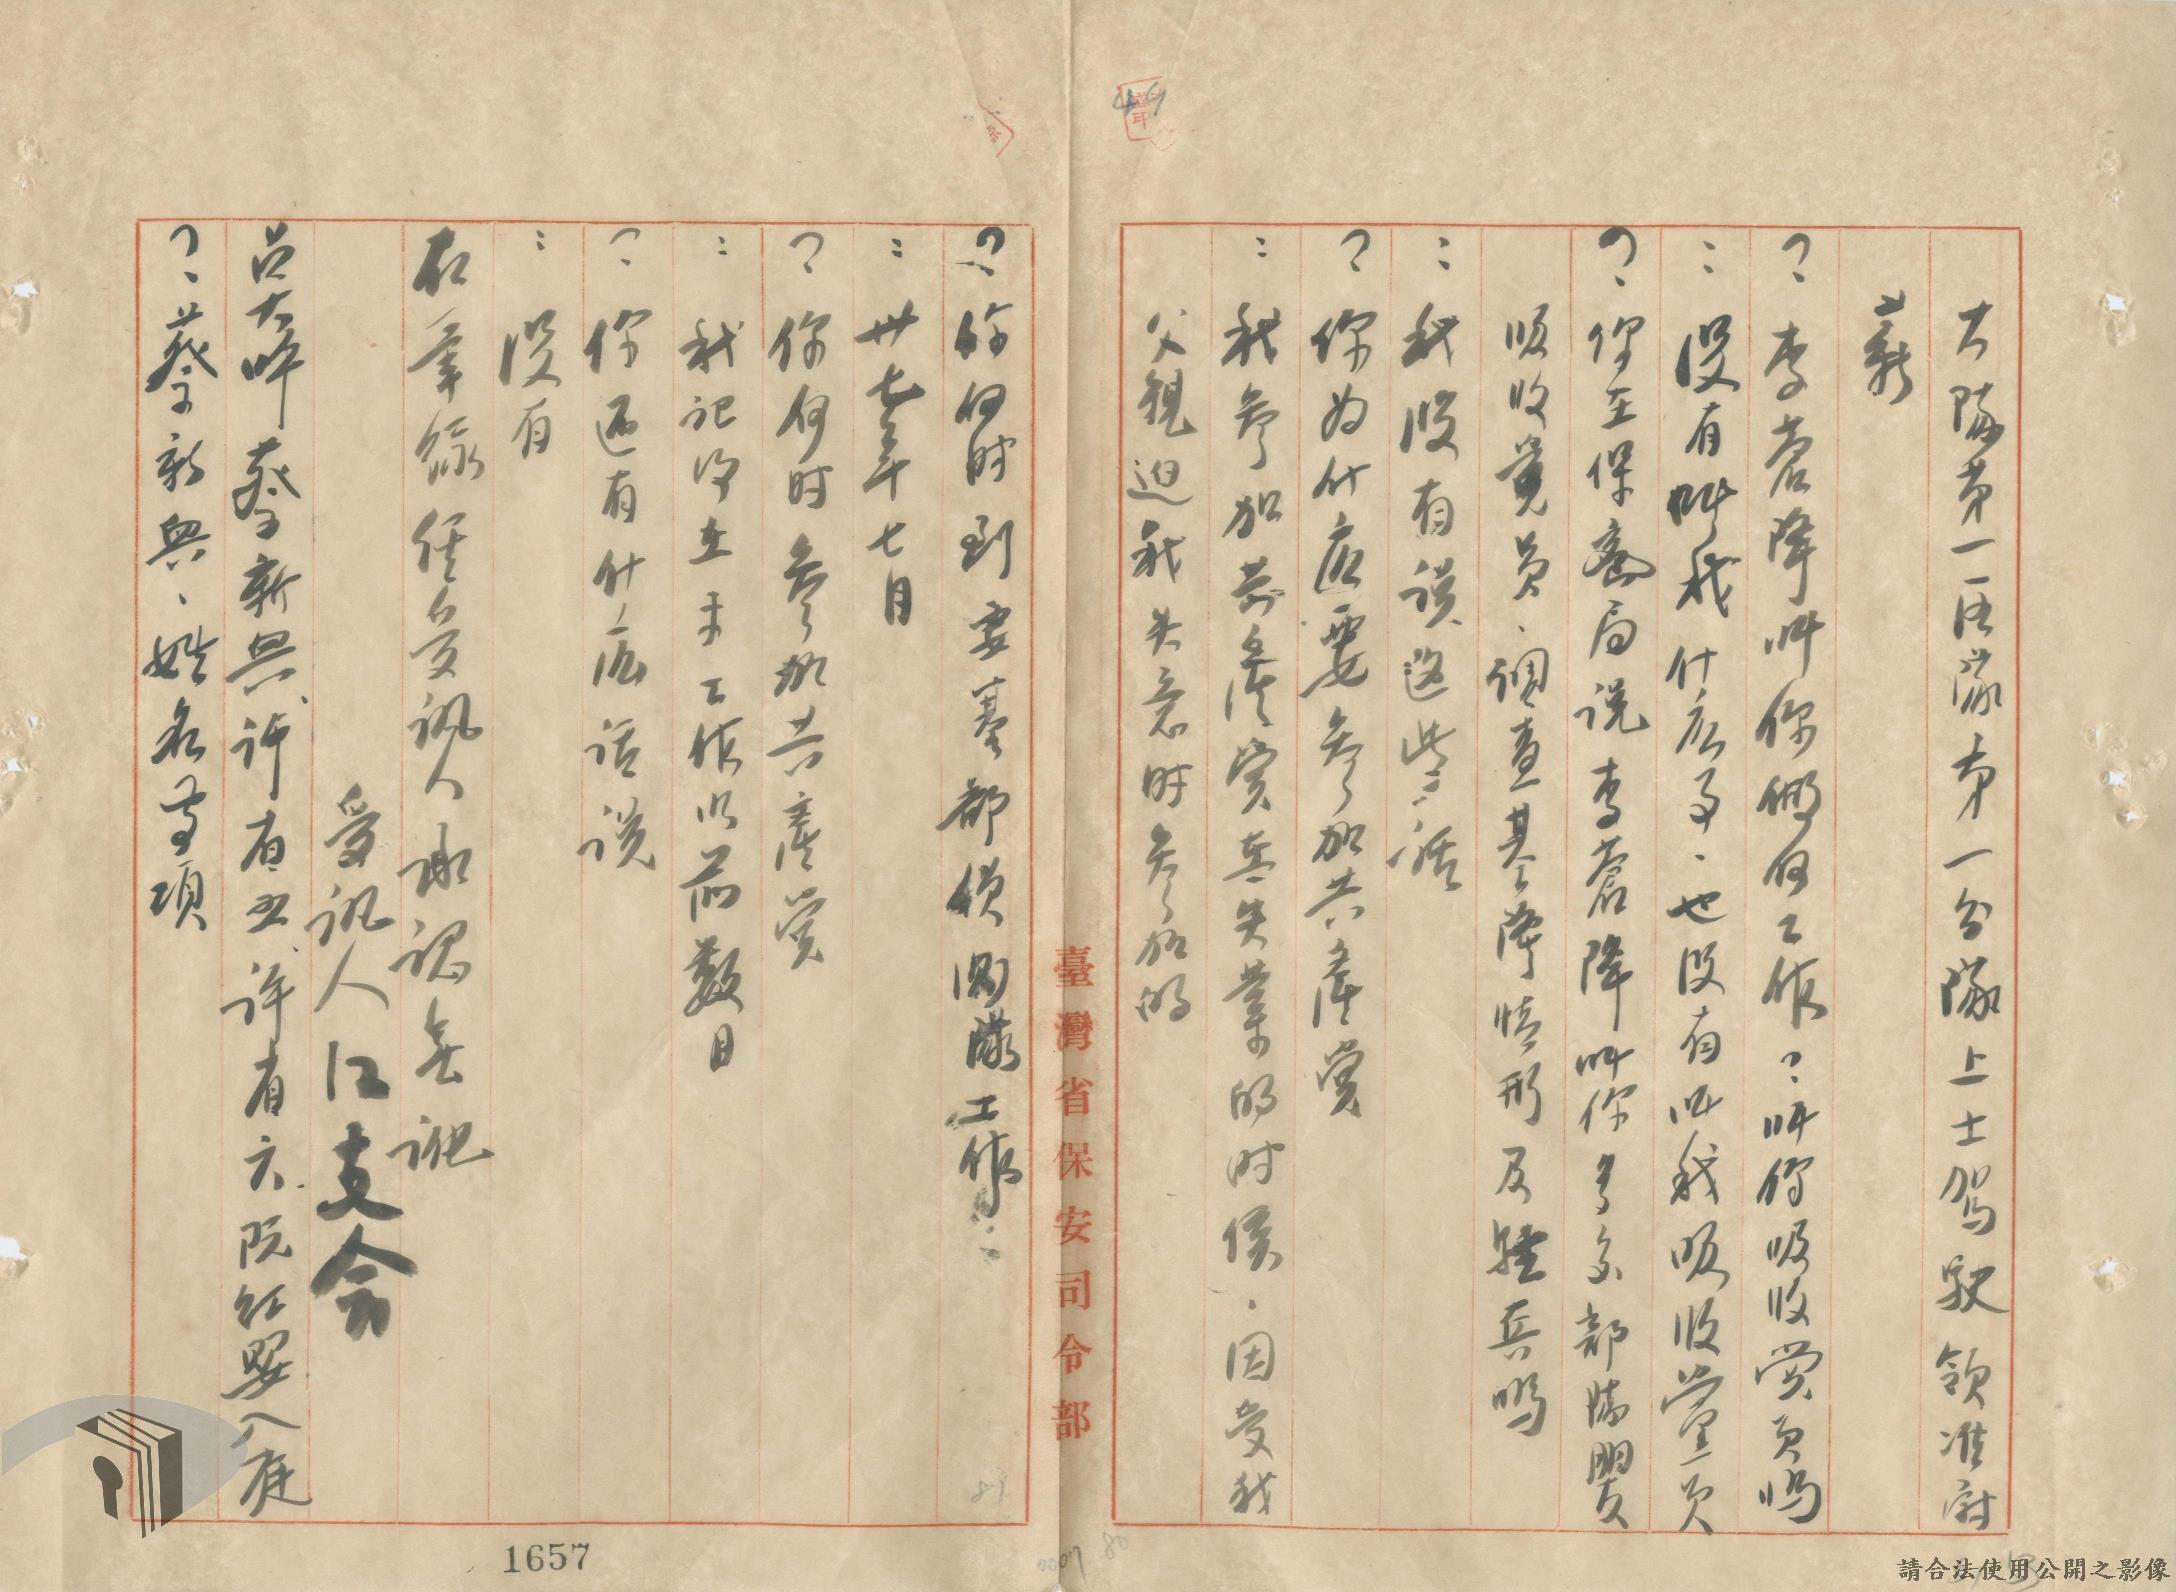 大隊第一區隊第一分隊上士駕駛領准尉
薪
?、李蒼降叫你做何工作?叫你吸收党員嗎
:沒有叫我什么事、也沒有叫我吸收党員
?、你在保密局說李蒼降叫你多交部隊朋友
吸收党員、調查基隆情形及駐兵嗎
:我沒有談這些話
?、你为什庅要參加共產党
:我參加共產党在失業的时候、因受我
父親迫我失意时參加的
?、你何时到要塞部偵測隊工作
:卅七年七月
?、你何时參加共產党
:我記得在未工作以前數日
?、你還有什庅話說
:沒有
右筆錄經受訊人承認無訛
受訊人江支会
吕大呼蔡新興許有 許有 阮紅嬰入庭
?、蔡新興、姓名等項
臺灣省保安司令部
1657
請合法使用公開之影像